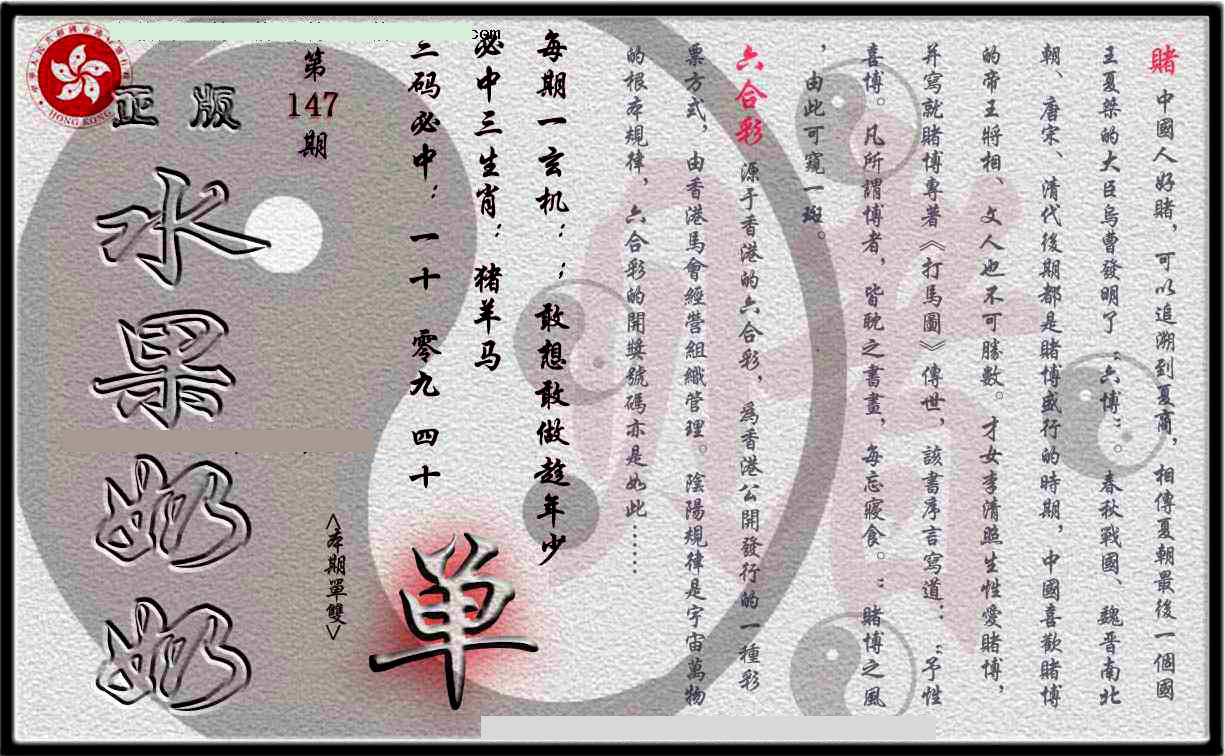 賭 中國人好賭，可以追溯到夏商，相傳夏朝最後一個國
王夏桀的大臣烏曹發明了“六博”。春秋戰國、魏晋南北
朝、唐宋、清代後期都是賭博盛行的時期，中國喜歡賭博
的帝王將相、文人也不可勝數。才女李清照生性愛賭博，
并寫就賭博專著《打馬圖》傳世，該書序言寫道：“予性
喜博。凡所謂博者，皆耽之書畫，每忘寢食。”賭博之風
，由此可窺一斑。
六合彩 源于香港的六合彩，為香港公開發行的一種彩
票方式，由香港馬會經營組織管理。陰陽規律是宇宙萬物
的根本規律，六合彩的開獎號碼亦是如此……
每期一玄机：；敢想敢做趁年少
必中三生肖：猪羊马
三码必中：一十 零九 四十
第
147
期
正版
水果奶奶
<本期單雙>
单
HONG KONG
com